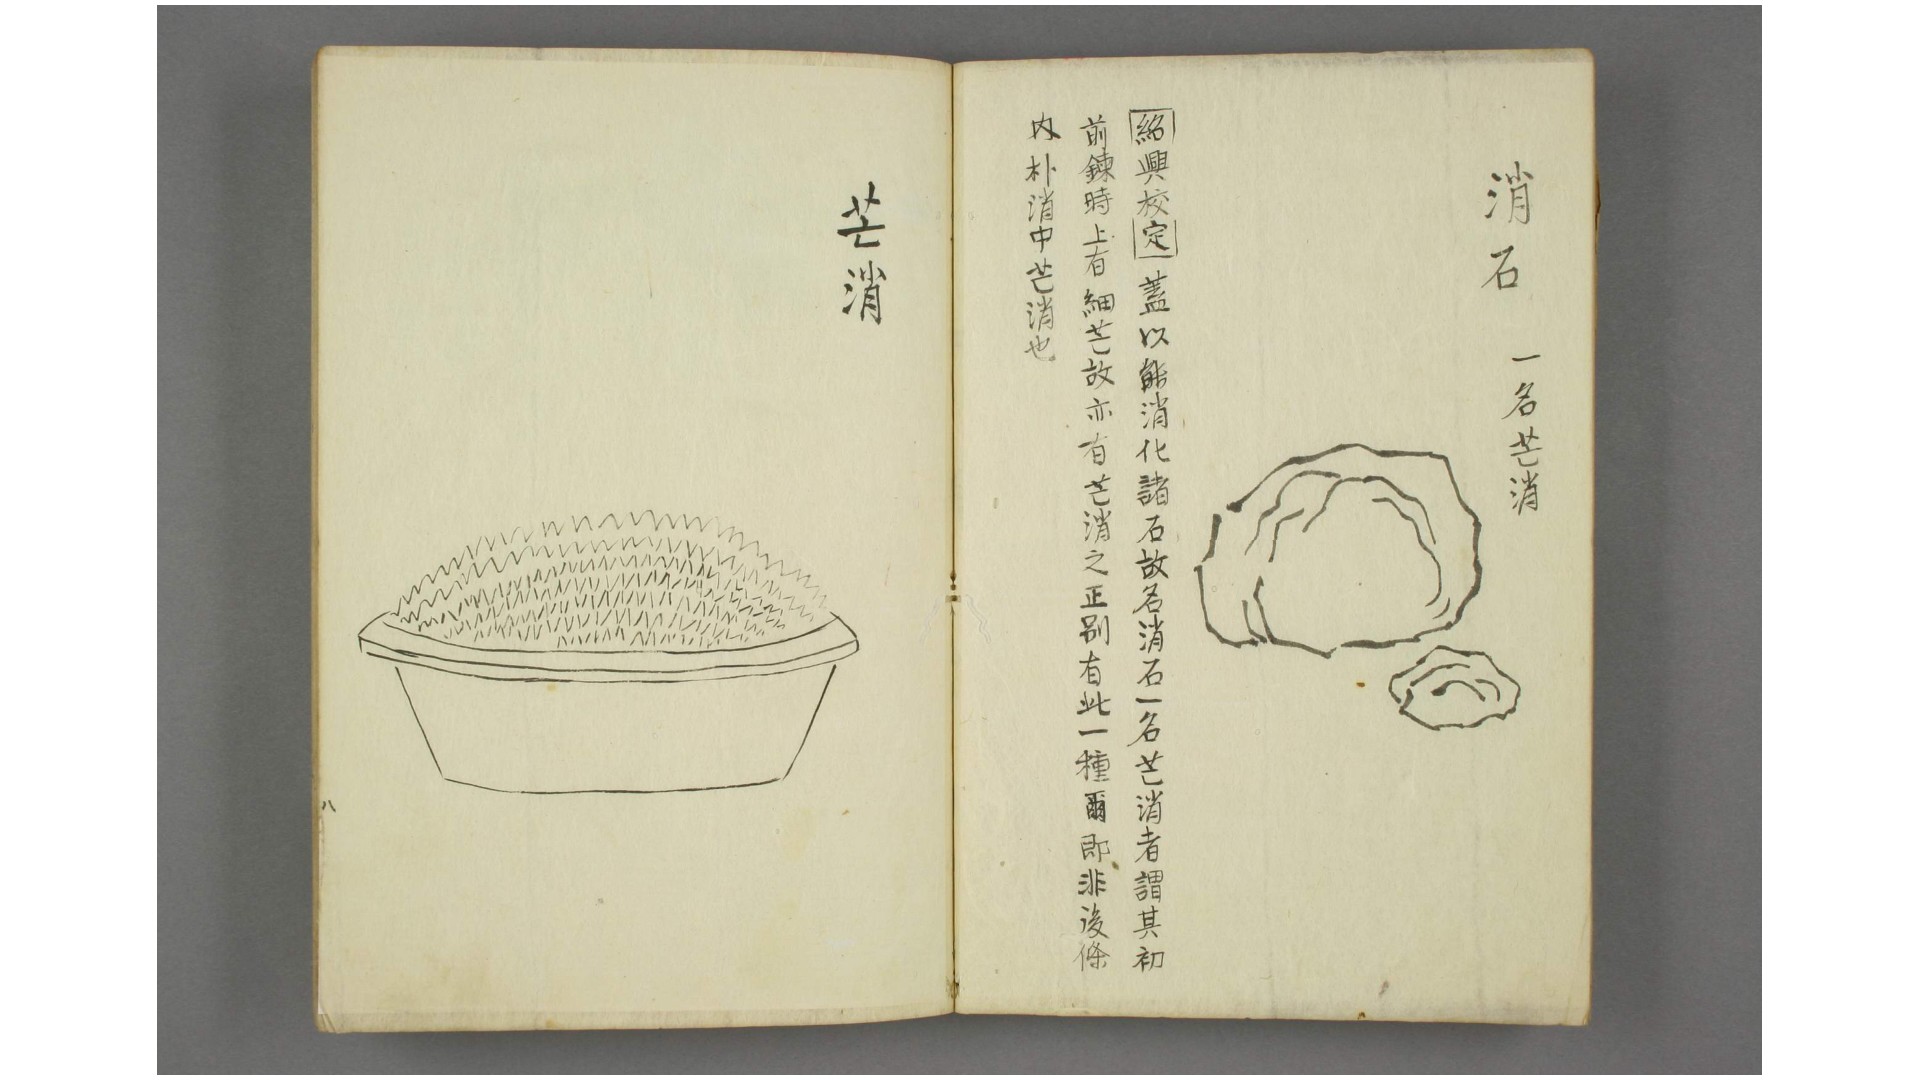 消石
一名芒消
紹興校定蓋以能消化諸石故名消石一名芒消者謂其初
前鍊時上有細芒故亦有芒消之正别有此一種爾即非後條
内朴消中芒消也
芒消
八